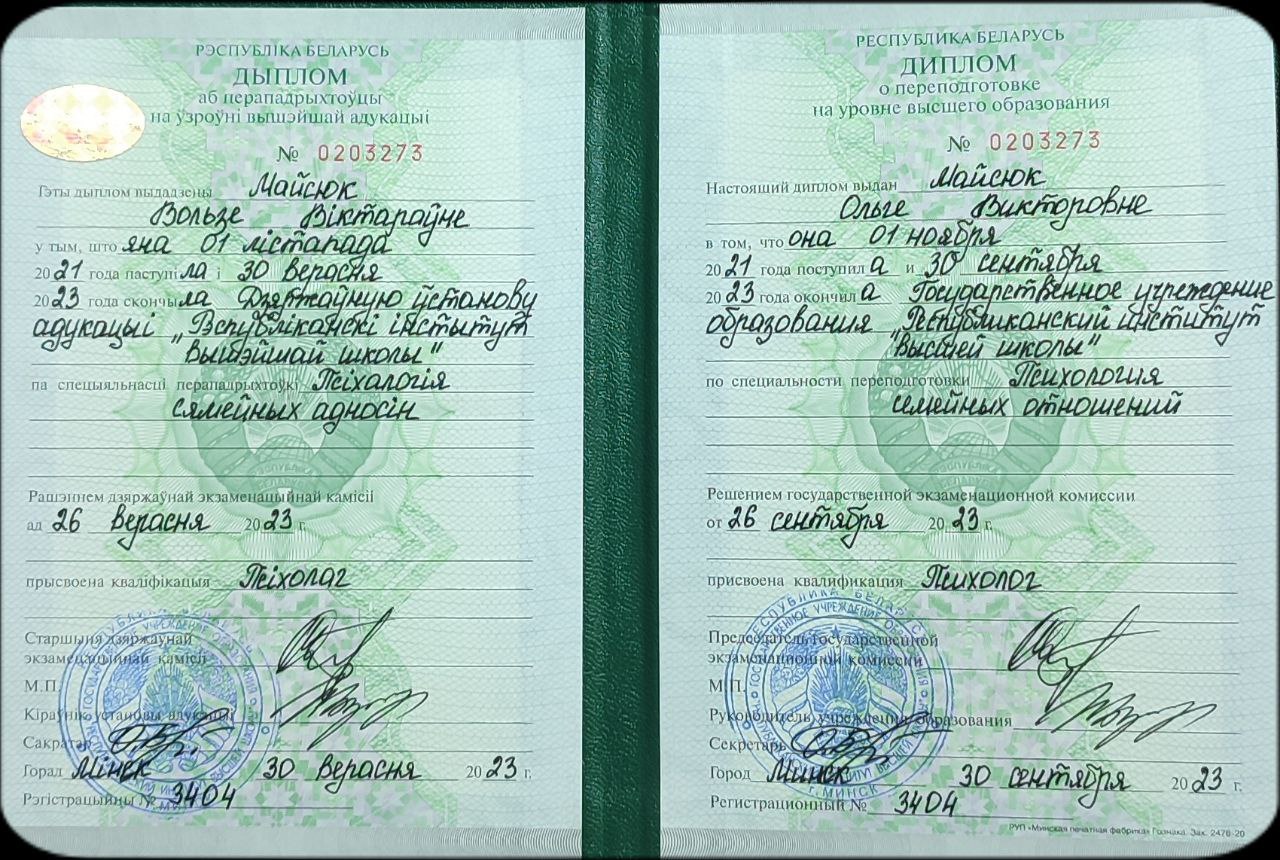 РЭСПУБЛІКА БЕЛАРУСЬ
ДЫПЛОМ
аб перападрыхтоўцы
на ўзроўні вышэйшай адукацыі
№ 0203273
Гэты дыплом выдадзены Майсюк
Вользе Віктараўне
у тым, што яна 01 лістапада
2021 года паступіла і 30 верасня
2023 года скончыла Дзяржаўную ўстанову
адукацыі „Рэспубліканскі інстытут
вышэйшай школы"
па спецыяльнасці перападрыхтоўкі Псіхалогія
сямейных адносін
Рашэннем дзяржаўнай экзаменацыйнай камісіі
ад 26 верасня 2023 г.
прысвоена кваліфікацыя Псіхолаг
Старшыня дзяржаўнай
экзаменацыйнай камісіі
М.П.
Кіраўнік установы адукацыі
Сакратар
Горад Мінск 30 верасня 2023 г.
Рэгістрацыйны № 3404
РЕСПУБЛИКА БЕЛАРУСЬ
ДИПЛОМ
о переподготовке
на уровне высшего образования
№ 0203273
Настоящий диплом выдан Майсюк
Ольге Викторовне
в том, что она 01 ноября
2021 года поступила и 30 сентября
2023 года окончила Государственное учреждение
образования „Республиканский институт
"высшей школы"
по специальности переподготовки Психология
семейных отношений
Решением государственной экзаменационной комиссии
от 26 сентября 2023 г.
присвоена квалификация Психолог
Председатель государственной
экзаменационной комиссии
М.П.
Руководитель учреждения образования
Секретарь
Город Минск 30 сентября 2023 г.
Регистрационный № 3404
г. МИНСК
РУП «Минская печатная фабрика» Гознака. Зак. 2476-20